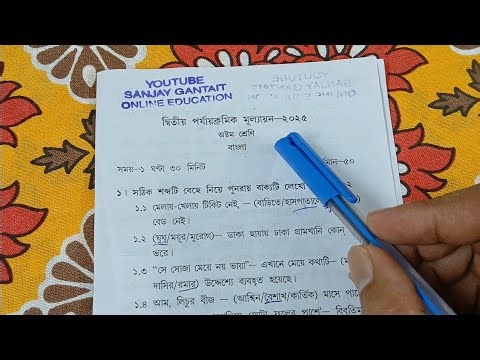 YOUTUBE
SANJAY GANTAIT
ONLINE EDUCATION
দ্বিতীয় পর্যায়ক্রমিক মূল্যায়ন—২০২৫
অষ্টম শ্রেণি
বাংলা
সময়—১ ঘণ্টা ৩০ মিনিট
মান—৫০
১। সঠিক শব্দটি বেছে নিয়ে পুনরায় বাক্যটি লেখো
১.১ মেলায়-খেলায় টিবিট নেই, — (বাড়িতে/হাসপাতালে
বেড নেই।
১.২ (ঘুঘু/ময়ূর/মুরোগ)— ডাকা ছায়ায় ঢাকা গ্রামখানি কোন
ভরে।
১.৩ “সে সোজা মেয়ে নয় ভায়া”— এখানে মেয়ে কথাটি—
দাসির/রমার) উদ্দেশ্যে ব্যবহৃত হয়েছে।
১.৪ আম, লিচুর বীজ — (আশ্বিন/বৈশাখ/কার্তিক) মাসে